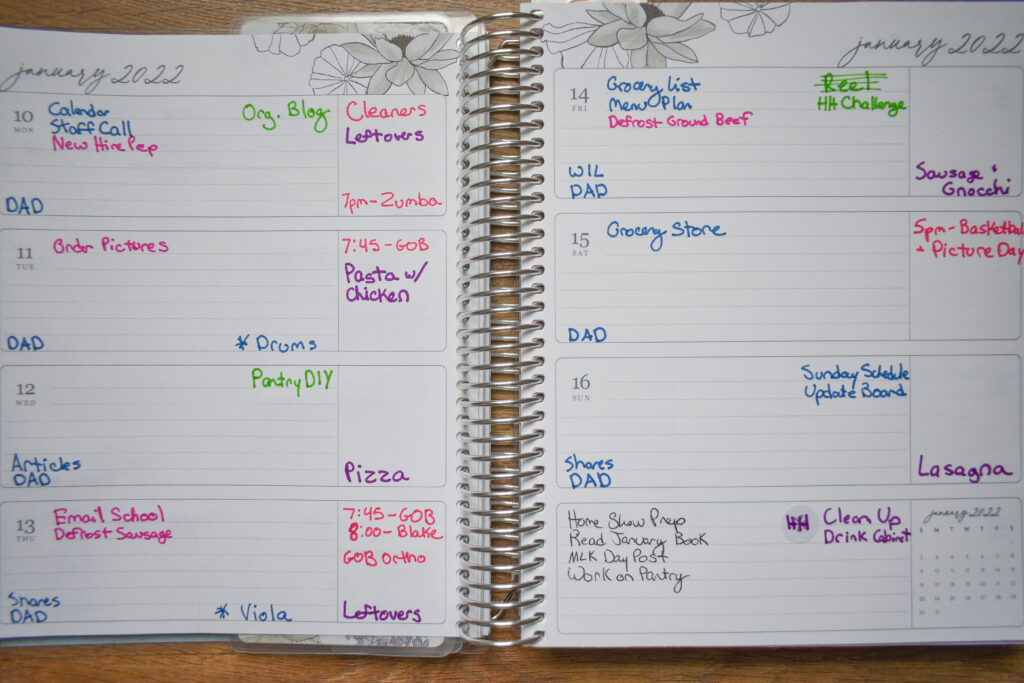 january 2022
10
MON
Calendar
Staff Call
New Hire Pep
Org. Blog
Cleaners
Leftovers
7pm - Zumba
DAD
11
TUE
Order Pictures
7:45 - GOB
Pasta w/
Chicken
DAD
* Drums
12
WED
Pantry DIY
Articles
DAD
Pizza
13
THU
Email School
Defrost Sausage
7:45 - GOB
8:00 - Blake
GOB Ortho
Shares
DAD
* Viola
Leftovers
january 2022
14
FRI
Grocery List
Menu Plan
Defrost Ground Beef
Reel
HH Challenge
WIL
DAD
Sausage +
Gnocchi
15
SAT
Grocery Store
5pm - Basketball
+ Picture Day
DAD
16
SUN
Sunday Schedule
Update Board
Shares
DAD
Lasagna
Home Show Prep
Read January Book
MLK Day Post
Work on Pantry
HH
Clean Up
Drink Cabinet
january 2022
S M T W T F S